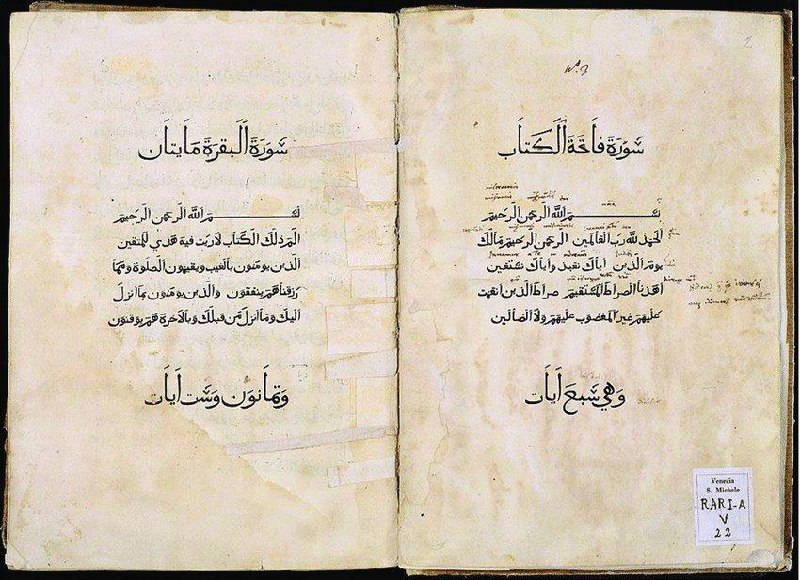 2
Nº 3
سورة فاتحة الكتاب
بسم الله الرحمن الرحيم
الحمد لله رب العالمين الرحمن الرحيم مالك
يوم الدين اياك نعبد واياك نستعين
اهدنا الصراط المستقيم صراط الذين انعمت
عليهم غير المغضوب عليهم ولا الضالين
وهي سبع ايات
Venezia
S. Michele
RARI-A
V
22
سورة البقرة مايتان
بسم الله الرحمن الرحيم
الم ذلك الكتاب لا ريب فية هدي للمتقين
الذين يومنون بالغيب ويقيمون الصلوة ومما
رزقناهم ينفقون والذين يومنون بما انزل
اليك وما انزل من قبلك وبالاخرة هم يوقنون
وثمانون وست ايات